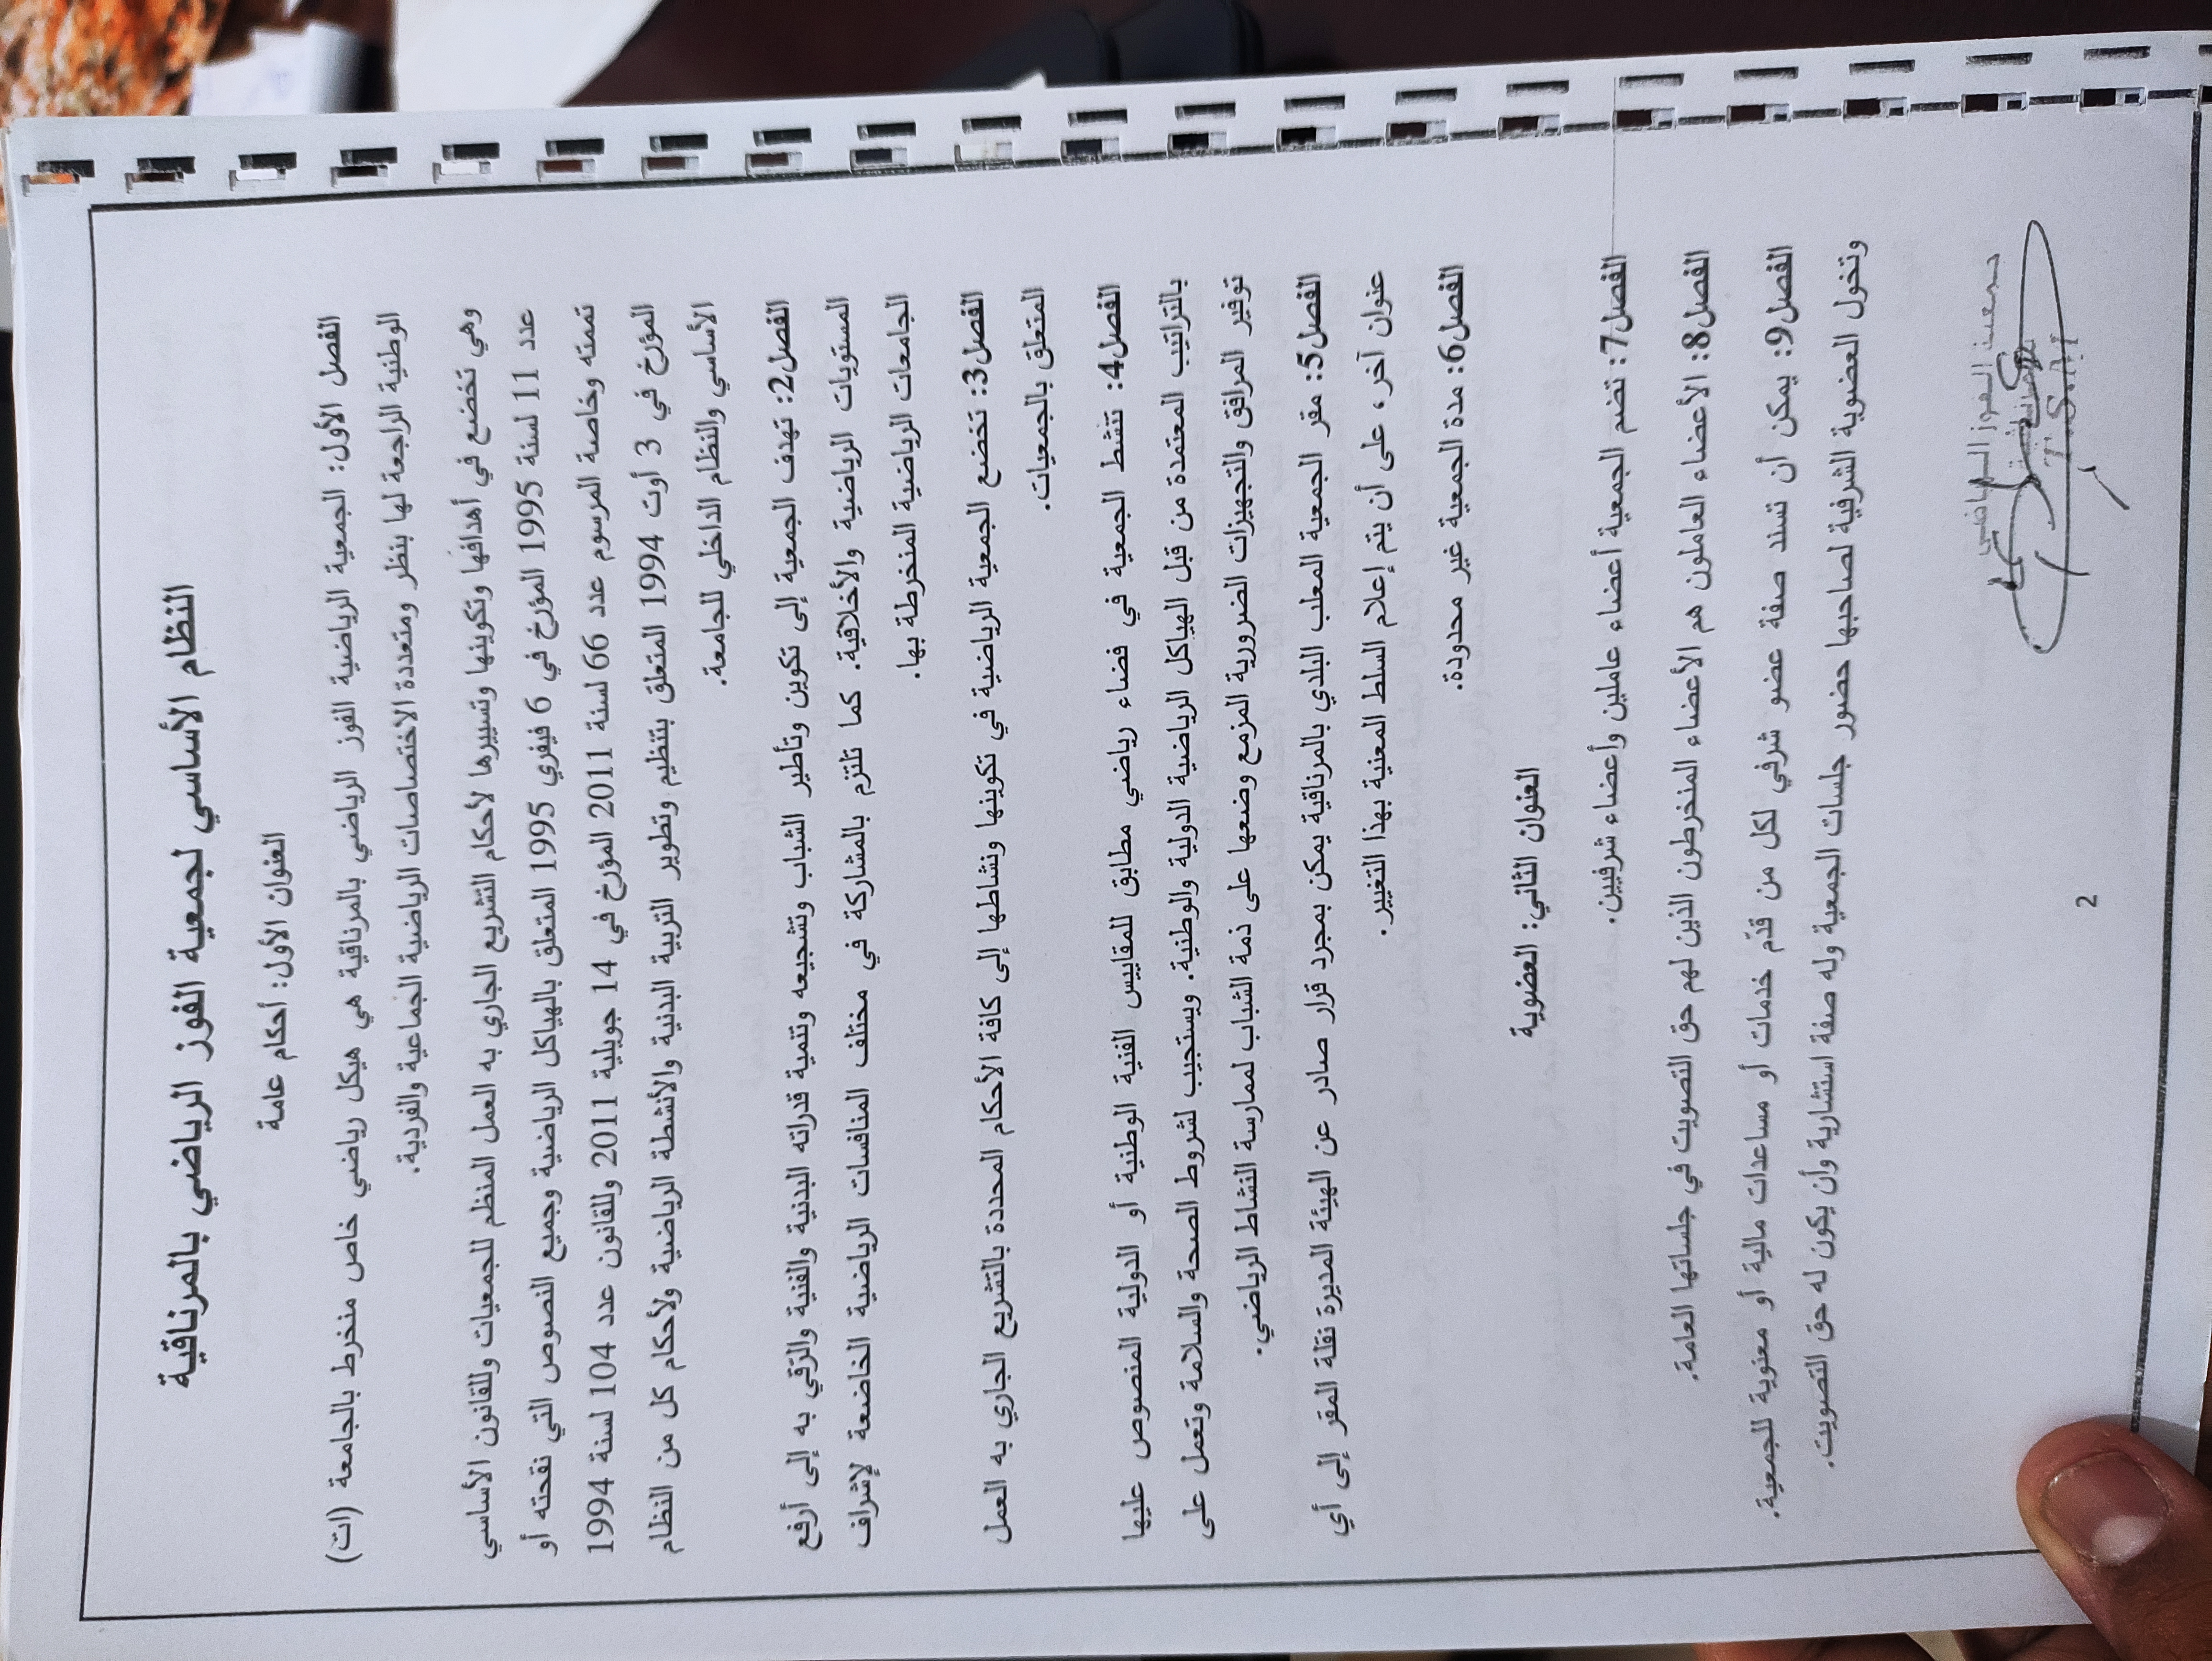 النظام الأساسي لجمعية الفوز الرياضي بالمرناقية
العنوان الأول: أحكام عامة
الفصل الأول: الجمعية الرياضية الفوز الرياضي بالمرناقية هي هيكل رياضي خاص منخرط بالجامعة (ات)
الوطنية الراجعة لها بنظر ومتعددة الاختصاصات الرياضية الجماعية والفردية.
وهي تخضع في أهدافها وتكوينها وتسييرها لأحكام التشريع الجاري به العمل المنظم للجمعيات وللقانون الأساسي
عدد 11 لسنة 1995 المؤرخ في 6 فيفري 1995 المتعلق بالهياكل الرياضية وجميع النصوص التي نقحته أو
تممته وخاصة المرسوم عدد 66 لسنة 2011 المؤرخ في 14 جويلية 2011 وللقانون عدد 104 لسنة 1994
المؤرخ في 3 أوت 1994 المتعلق بتنظيم وتطوير التربية البدنية والأنشطة الرياضية ولأحكام كل من النظام
الأساسي والنظام الداخلي للجامعة.
الفصل2: تهدف الجمعية إلى تكوين وتأطير الشباب وتشجيعه وتنمية قدراته البدنية والفنية والرّقي به إلى أرفع
المستويات الرياضية والأخلاقية. كما تلتزم بالمشاركة في مختلف المنافسات الرياضية الخاضعة لإشراف
الجامعات الرياضية المنخرطة بها.
الفصل3: تخضع الجمعية الرياضية في تكوينها ونشاطها إلى كافة الأحكام المحددة بالتشريع الجاري به العمل
المتعلق بالجمعيات.
الفصل4: تنشط الجمعية في فضاء رياضي مطابق للمقاييس الفنية الوطنية أو الدولية المنصوص عليها
بالتراتيب المعتمدة من قبل الهياكل الرياضية الدولية والوطنية. ويستجيب لشروط الصحة والسلامة وتعمل على
توفير المرافق والتجهيزات الضرورية المزمع وضعها على ذمة الشباب لممارسة النشاط الرياضي.
الفصل5: مقر الجمعية الملعب البلدي بالمرناقية يمكن بمجرد قرار صادر عن الهيئة المديرة نقلة المقر إلى أي
عنوان آخر، على أن يتم إعلام السلط المعنية بهذا التغيير.
الفصل6: مدة الجمعية غير محدودة.
العنوان الثاني: العضوية
الفصل7: تضم الجمعية أعضاء عاملين وأعضاء شرفيين.
الفصل8: الأعضاء العاملون هم الأعضاء المنخرطون الذين لهم حق التصويت في جلساتها العامة.
الفصل9: يمكن أن تسند صفة عضو شرفي لكل من قدّم خدمات أو مساعدات مالية أو معنوية للجمعية.
وتخول العضوية الشرفية لصاحبها حضور جلسات الجمعية وله صفة استشارية وأن يكون له حق التصويت.
جمعية الفوز الرياضي
2